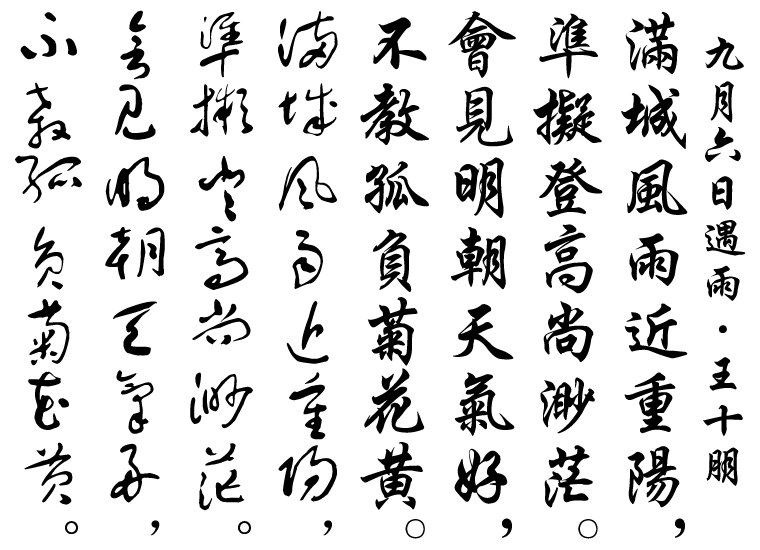 九月六日遇雨·王十朋
滿城風雨近重陽，
準擬登高尚渺茫。
會見明朝天氣好，
不教孤負菊花黃。
滿城風雨近重陽，
準擬登高尚渺茫。
會見明朝天氣好，
不教孤負菊花黃。